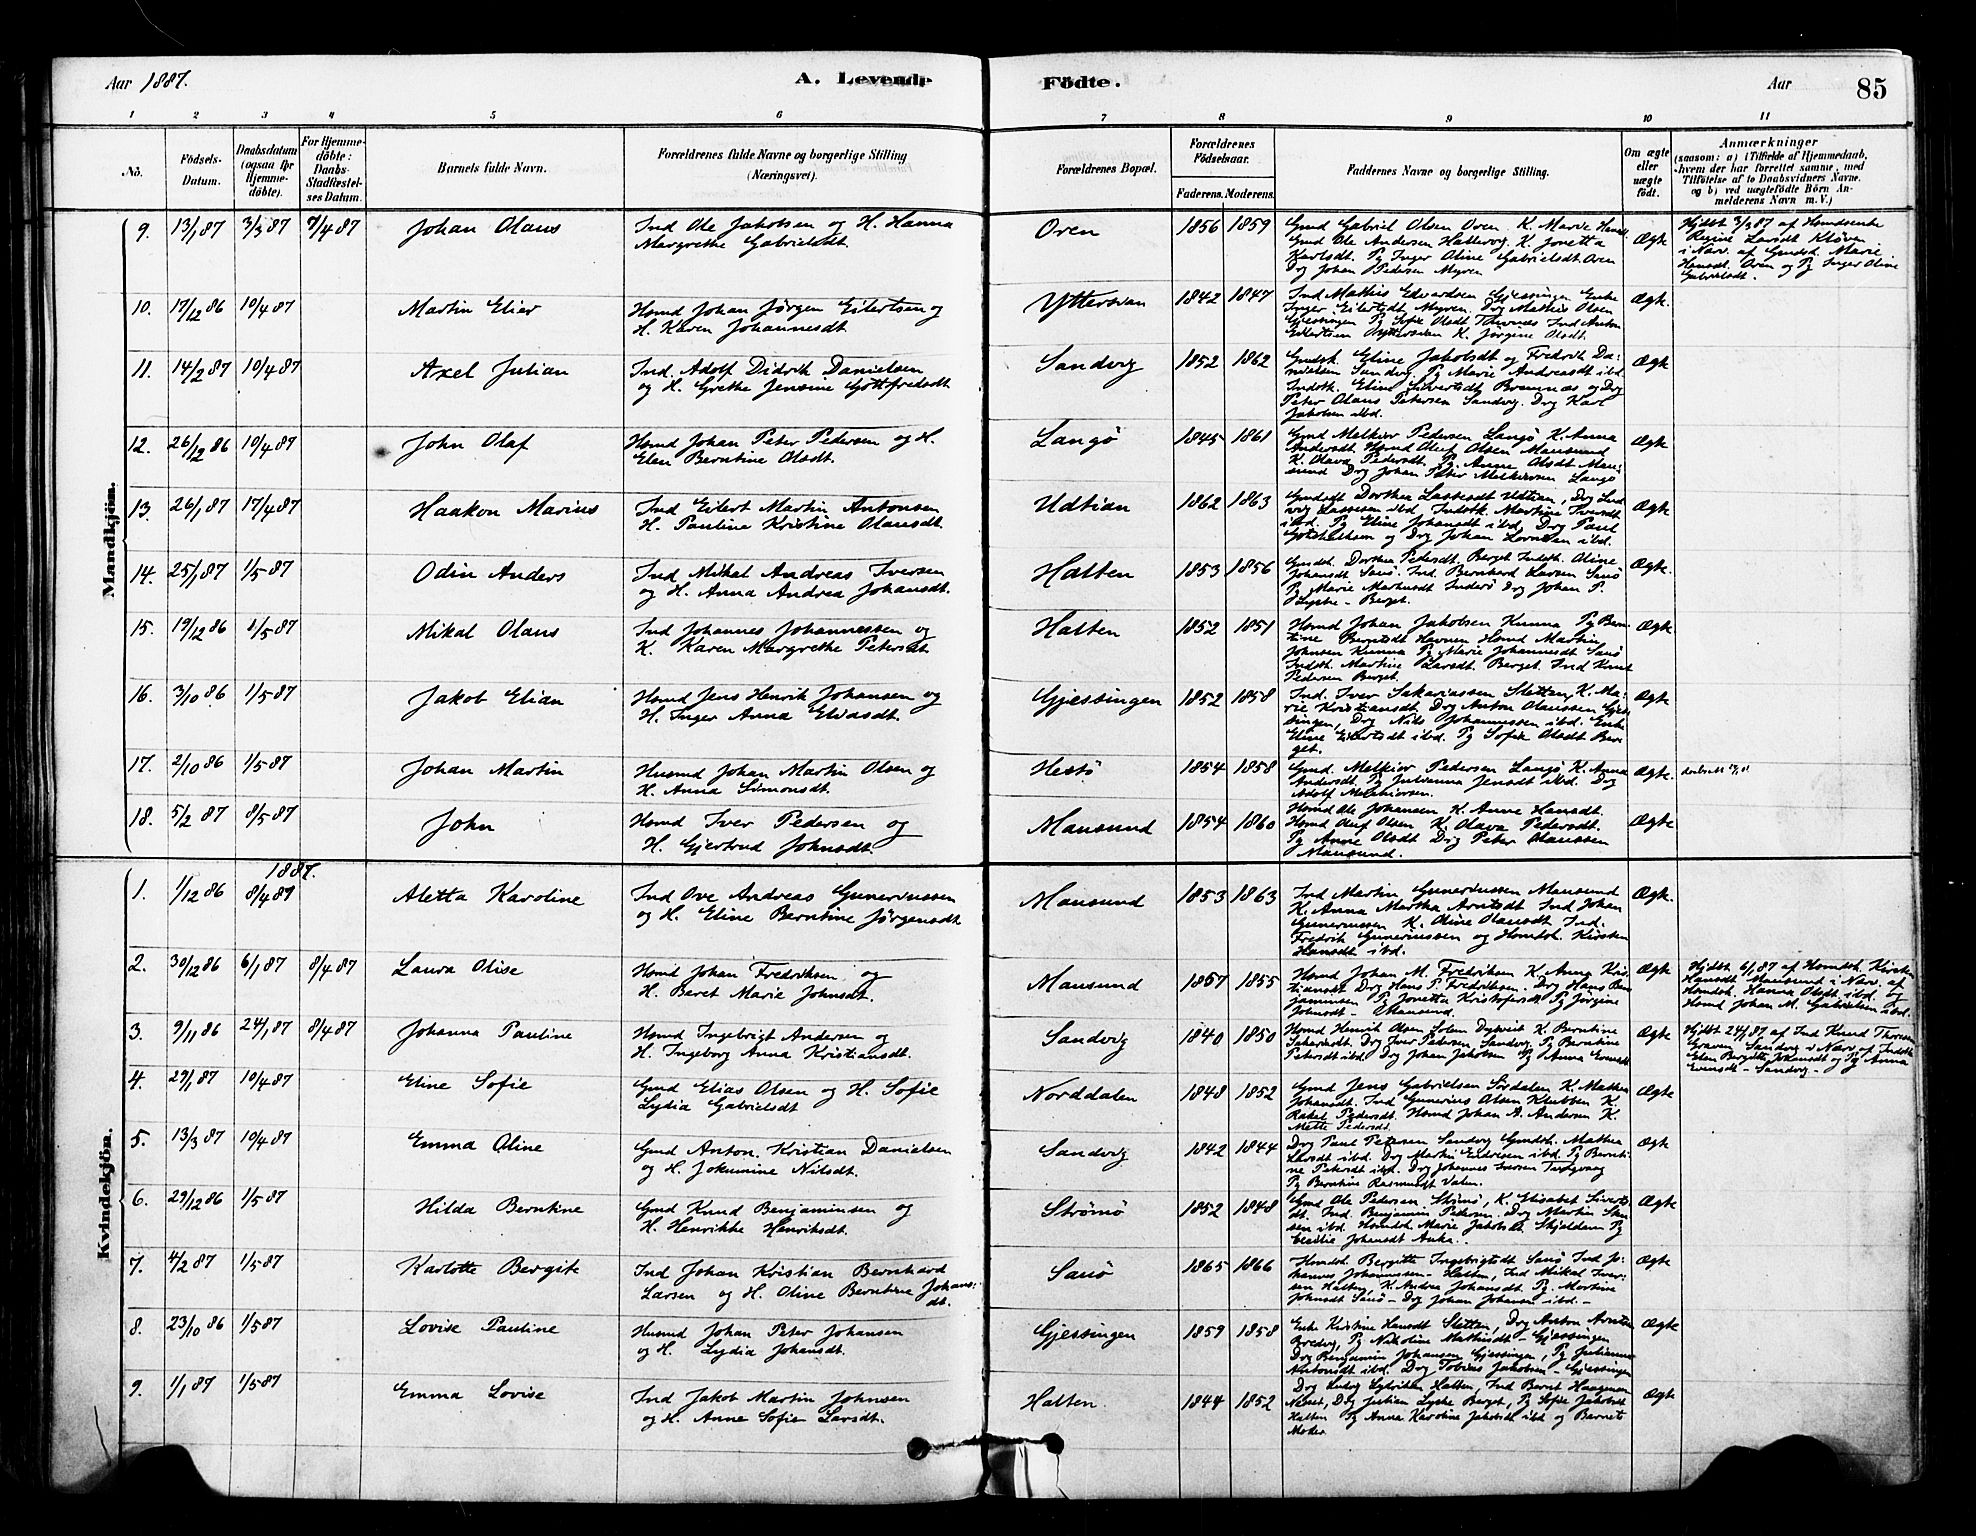 Aar 1887.
A. Levende
Födte.
Aar
85
1 2 3 4 5 6 7 8 9 10 11
No.
Födsels-
Datum.
Daabsdatum
(ogsaa for
Hjemme-
döbte).
For Hjemme-
döbte:
Daabs-
Stadfæstel-
ses Datum.
Barnets fulde Navn.
Forældrenes fulde Navne og borgerlige Stilling
(Næringsvei).
Forældrenes Bopæl.
Forældrenes
Födselsaar.
Faderens. Moderens.
Faddernes Navne og borgerlige Stilling.
Om ægte
eller
uægte
födt.
Anmærkninger
(saasom: a) i Tilfælde af Hjemmedaab,
hvem der har forrettet samme, med
Tilföielse af to Daabsvidners Navne,
og b) ved uægtefödte Börn An-
melderens Navn m. V.)
Mandkjön.
9. 13/1 87 3/3 87 7/4 87 Johan Olaus
Ind Ole Jakobsen og H. Hanna
Margrethe Gabrielsdt.
Oren 1856 1859
Gmd Gabriel Olsen Oren K. Marie Hansd.
Gmd Ole Andersen Hallevog K. Jonetta
Karlsdt. Pg Inger Oline Gabrielsdt. Oren
Drg Johan Pedersen Myren
Ægte
Hjdbt 3/3 87 af Hsmdsenke
Regine Larsdt
i Nærv. af Gmdsk. Marie
Hansdt. Oren og Pg Inger Oline
Gabrielsdt.
10. 17/12 86 10/4 87 Martin Elier
Hsmd Johan Jørgen Eilertsen og
H. Karen Johannesdt.
Yttersian 1842 1847
Ind Mathis Edvardsen Gjessingen Enke
Inger Eilertsdt Myren. Drg Mathis Olsen
Gjessingen Pg Sofie Olsdt Ind Anton
Eilertsen Yttersian K. Jørgine Olsdt.
Ægte.
11. 14/2 87 10/4 87 Axel Julian
Ind. Adolf Didrik Danielsen
og H. Grethe Jensine Gottfredsdt
Sandvig 1852 1862
Gmdsk. Eline Jakobsdt og Fredrik Da-
nielsen Sandvig. Pg Marie Andreasdt ibd.
Indstk. Eline Sivertsdt Bremnæs og Drg
Peter Olaus Petersen Sandvig. Drg Karl
Jakobsen ibd.
Ægte
12. 26/12 86 10/4 87 John Olaf
Hsmd Johan Peter Pedersen og H.
Elen Berntine Olsdt.
Langø 1845 1861
Gmd Melkior Pedersen Langø K. Anna
Andersdt. Hsmd Oluf Olsen Mausund
K. Olava Pedersdt. Pg. Anne Olsdt Mau-
sund Drg Johan Peter Melkiorsen Langø
Ægte
13. 26/1 87 17/4 87 Haakon Marius
Ind Eilert Martin Antonsen
H. Pauline Kristine Olausdt.
Udtian 1862 1863
Gmdsdt Dorthea Lassesdt Udtian, Drg Lud
vig Lassesen ibd. Indstk. Martine Iversdt
ibd. Pg Eline Johansdt ibd, Drg Paul
og Drg Johan ibd.
Ægte
14. 25/1 87 1/5 87 Odin Anders
Ind Mikal Andreas Iversen
og H. Anna Andrea Johansdt.
Halten 1853 1856
Gmdsk. Dorthea Pedersdt. Berget Indstk. Oline
Johansdt Sauø. Ind. Bernhard Larsen Sauø
Pg Marie Inderø Drg Johan P.
Lyske - Berget.
Ægte.
15. 19/12 86 1/5 87 Mikal Olaus
Ind Johannes Johannessen og
K. Karen Margrethe Petersdt.
Halten 1852 1851
Hsmd Johan Jakobsen Kunna Pg Bern-
tine Berntsdt Havnen Hsmd Martin
Johnsen Kunna Pg Marie Johannesdt Sauø
Indstk. Martine Larsdt. Berget. Ind Knut
Pedersen Berget.
Ægte
16. 3/10 86 1/5 87 Jakob Elian
Hsmd Jens Henrik Johansen og
H. Inger Anna Eliasdt.
Gjessingen 1852 1858
Ind. Iver Sakariassen Sletten K. Ma-
rie Kristiansdt. Drg Anton Olaussen Gjes-
singen, Drg Nils Johannessen ibd. Enke
Eline Eilertsdt ibd. Pg Sofie Olsdt Ber-
get.
Ægte
17. 2/10 86 1/5 87 Johan Martin
Husmd Johan Martin Olsen og
H. Anna Simonsdt.
Hestø 1854 1858
Gmd. Melkior Pedersen Langø K. Anna
Andersdt. Pg Julianna Jensdt ibd. Drg
Adolf Melkiorsen.
Ægte.
18. 5/2 87 8/5 87 John
Hsmd Iver Pedersen og
H. Gjertrud Johnsdt.
Mausund 1854 1860
Hsmd Ole Johansen K. Anne Hansdt.
Hsmd Oluf Olsen K. Olava Pedersdt.
Pg Anne Olsdt Drg Peter Olaussen
Mausund.
Ægte
Kvindekjön.
1887.
1. 1/12 86 8/4 87 Aletta Karoline
Ind Ove Andreas Gunerinssen
og H. Eline Berntine Jørgensdt
Mausund 1853 1863
Ind Martin Gunerinssen Mausund
K. Anna Martha Arntsdt Ind Johan
Gunerinssen K. Oline Olausdt Ind.
Fredrik Gunerinssen og Hsmdsk. Kirsten
Hansdt ibd.
Ægte.
2. 30/12 86 6/1 87 8/4 87 Laura Olise
Hsmd Johan Fredriksen og
H. Beret Marie Johnsdt.
Mausund 1857 1855
Hsmd Johan M. Fredriksen K. Anna Kris-
tiansdt Drg Hans P. Fredriksen. Drg Hans Ben-
jaminsen Pg Jonetta Kristofersdt Pg Jørgine
Johnsdt - Mausund.
Ægte
Hjdbt 6/1 87 af Hsmdsk. Kirsten
Hansdt Mausund i Nærv. af
Hsmdsk. Hanna Olsdt ibd. og
Hsmd Johan M. Gabrielsen ibd.
3. 9/11 86 24/1 87 8/4 87 Johanna Pauline
Hsmd Ingebrigt Andersen og
H. Ingeborg Anna Kristiansdt.
Sandvig 1840 1850
Hsmd Henrik Olsen Solem K. Berntine
Sakariasdt. Drg Iver Pedersen Sandvig Pg Berntine
Petersdt ibd. Drg Johan Jakobsen Pg Anna Evensdt
Ægte
Hjdbt 24/1 87 af Ind Knud Thoresen
Graven Sandvig i Nærv. af Indstk
Elen Bergitte Johansdt og Pg Anna
Evensdt - Sandvig -
4. 29/1 87 10/4 87 Eline Sofie
Gmd Elias Olsen og H. Sofie
Lydia Gabrielsdt
Norddalen 1848 1852
Gmd Jens Gabrielsen Sørdalen K. Mathea
Johansdt. Ind Gunerius Olsen Klubben K.
Rakel Pedersdt. Hsmd Johan A. Andersen K.
Mette Pedersdt.
Ægte
5. 13/3 87 10/4 87 Emma Oline
Gmd Anton Kristian Danielsen
og H. Jokumine Nilsdt.
Sandvig 1842 1844
Drg Paul Petersen Sandvig Gmdsk. Mathea
Larsdt ibd. Drg Martin Endresen ibd. Pg Bernti-
ne Petersdt ibd. Drg Johannes Larsen
Pg Berntine Rasmusdt Valen.
Ægte
6. 29/12 86 1/5 87 Hilda Berntine
Gmd Knud Benjaminsen og
H. Henrikke Henriksdt.
Strømø 1852 1848
Gmd Ole Pedersen Strømø, K. Elisabet Siverts-
dt. Ind. Benjamin Pedersen. Drg Martin
ibd. Hsmdsk. Marie Jakobsdt Skjeldem Pg
Cecilie Johansdt
Ægte
7. 4/2 87 1/5 87 Karlotte Bergite
Ind Johan Kristian Bernhard
Larsen og H. Oline Berntine Johans-
dt.
Sauø 1865 1866
Hsmdsk Bergitte Ingebrigtsdt Sauø Ind Jo-
hannes Johannessen - Halten, Ind Mikal Iver-
sen Halten, K. Andrea Johansdt. Pg. Martine
Johnsdt Sauø - Drg Johan Johansen ibd. -
Ægte
8. 23/10 86 1/5 87 Lovise Pauline
Husmd Johan Peter Johansen
og H. Lydia Johansdt.
Gjessingen 1859 1858
Enke Kristine Hansdt Sletten, Drg Anton Arntsen
Bredvig, Pg Nikoline Mathisdt - Gjessingen
Drg Benjamin Johansen Gjessingen, Pg Julianna
Antonsdt ibd. Drg Tobias Jakobsen - Gjessingen
Ægte
9. 1/1 87 1/5 87 Emma Lovise
Ind Jakob Martin Johnsen
og H. Anne Sofie Larsdt.
Halten 1844 1852
Drg Ludvig Halten, Ind Bernt
Drg Julian Lyske Berget, Pg Sofie Jakobsdt
Halten Pg Anna Karoline Jakobsdt ibd og Barnets
Moder.
Ægte